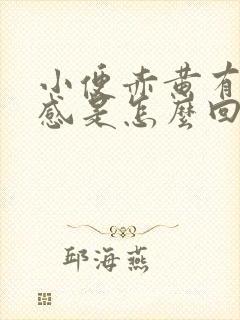 小便赤黄有
感是怎麼回
邱海燕